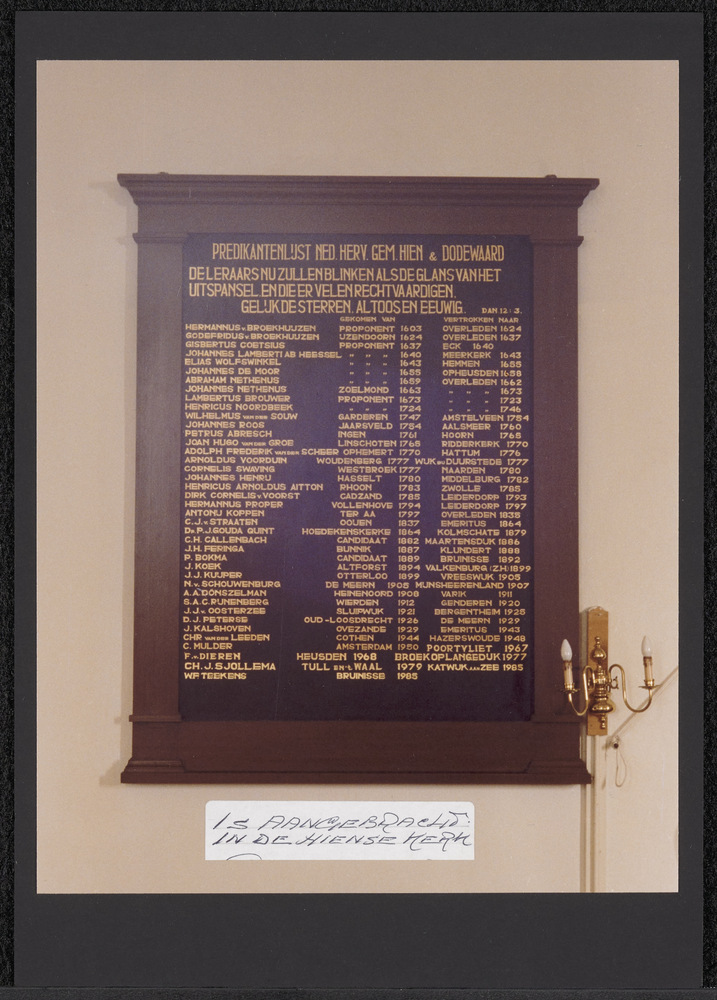 PREDIKANTENLIJST NED. HERV. GEM. HIEN & DODEWAARD
DE LERAARS NU ZULLEN BLINKEN ALS DE GLANS VAN HET
UITSPANSEL. EN DIE ER VELEN RECHTVAARDIGEN.
GELIJK DE STERREN. ALTOOS EN EEUWIG. DAN. 12 : 3.
GEKOMEN VAN VERTROKKEN NAAR
HERMANNUS v. BROEKHUIJZEN PROPONENT 1603 OVERLEDEN 1624
GODEFRIDUS v. BROEKHUIJZEN IJZENDOORN 1624 OVERLEDEN 1637
GISBERTUS COETSIUS PROPONENT 1637 ECK 1640
JOHANNES LAMBERTI AB HEESSEL " " " 1640 MEERKERK 1643
ELIAS WOLFSWINKEL " " " 1643 HEMMEN 1655
JOHANNES DE MOOR " " " 1655 OPHEUSDEN 1658
ABRAHAM NETHENUS " " " 1659 OVERLEDEN 1662
JOHANNES NETHENUS ZOELMOND 1663 " " " 1673
LAMBERTUS BROUWER PROPONENT 1673 " " " 1723
HENRICUS NOORDBEEK " " " 1724 " " " 1746
WILHELMUS VAN DER SOUW GARDEREN 1747 AMSTELVEEN 1754
JOHANNES ROOS JAARSVELD 1754 AALSMEER 1760
PETRUS ABRESCH INGEN 1761 HOORN 1765
JOAN HUGO VAN DER GROE LINSCHOTEN 1765 RIDDERKERK 1770
ADOLPH FREDERIK VAN DER SCHEER OPHEMERT 1770 HATTUM 1776
ARNOLDUS VOORDUIN WOUDENBERG 1777 WIJK BIJ DUURSTEDE 1777
CORNELIS SWAVING WESTBROEK 1777 NAARDEN 1780
JOHANNES HENRIJ HASSELT 1780 MIDDELBURG 1782
HENRICUS ARNOLDUS AITTON RHOON 1783 ZWOLLE 1785
DIRK CORNELIS v. VOORST CADZAND 1785 LEIDERDORP 1793
HERMANNUS PROPER VOLLENHOVE 1794 LEIDERDORP 1797
ANTONIJ KOPPEN TER AA 1797 OVERLEDEN 1835
C.J. v. STRAATEN OOIJEN 1837 EMERITUS 1864
Ds. P.J. GOUDA QUINT HOEDEKENSKERKE 1864 KOLMSCHATE 1879
C.H. CALLENBACH CANDIDAAT 1882 MAARTENSDIJK 1886
J.H. FERINGA BUNNIK 1887 KLUNDERT 1888
P. BOKMA CANDIDAAT 1889 BRUINISSE 1892
J. KOEK ALTFORST 1894 VALKENBURG (Z.H.) 1899
J.J. KUIJPER OTTERLOO 1899 VREESWIJK 1905
N. v. SCHOUWENBURG DE MEERN 1905 MIJNSHEERENLAND 1907
A.A. DÖNSZELMAN HEINENOORD 1908 VARIK 1911
S.A.C. RIJNENBERG WIERDEN 1912 GENDEREN 1920
J.J. v. OOSTERZEE SLIJPWIJK 1921 BERGENTHEIM 1925
D.J. PETERSE OUD-LOOSDRECHT 1926 DE MEERN 1929
J. KALSHOVEN OVEZANDE 1929 EMERITUS 1943
CHR VAN DER LEEDEN COTHEN 1944 HAZERSWOUDE 1948
C. MULDER AMSTERDAM 1950 POORTVLIET 1967
F. v. DIEREN HEUSDEN 1968 BROEK OP LANGEDIJK 1977
CH. J. SJOLLEMA TULL EN 't WAAL 1979 KATWIJK AAN ZEE 1985
WF TEEKENS BRUINISSE 1985
IS AANGEBRACHT:
IN DE HIENSE KERK